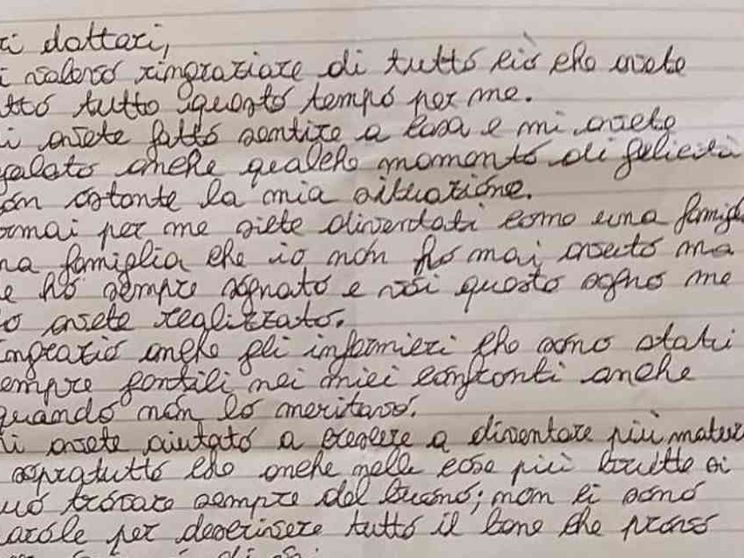 ri dottori,
i volevo ringraziare di tutto ciò che avete
tto tutto questo tempo per me.
i avete fatto sentire a casa e mi avete
galato anche qualche momento di felicità
on ostante la mia situazione.
ormai per me siete diventati come una famigli
na famiglia che io non ho mai avuto ma
e ho sempre sognato e voi questo sogno me
o avete realizzato.
ingrazio anche gli infermieri che sono stati
empre gentili nei miei confronti anche
quando non lo meritavo.
i avete aiutato a crescere a diventare più matur
sopratutto che anche nelle cose più brutte si
uò trovare sempre del buono; non ci sono
arole per descrivere tutto il bene che provo